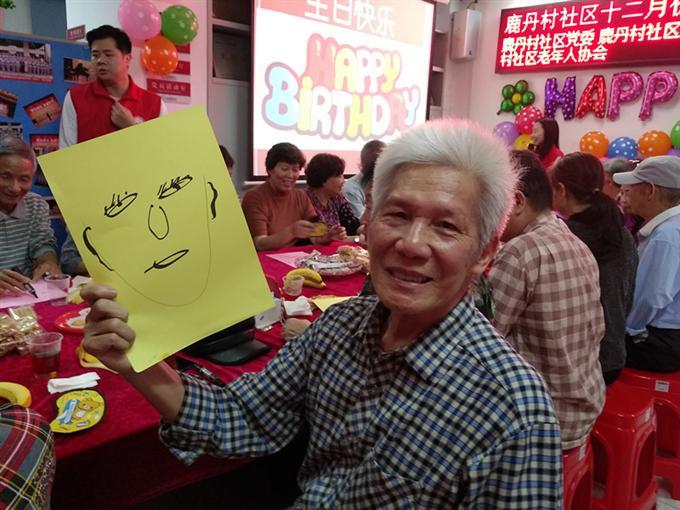 生日快乐
HAPPY
BIRTHDAY
鹿丹村社区十二月
鹿丹村社区党委 鹿丹村社区
村社区老年人协会
HAPPY